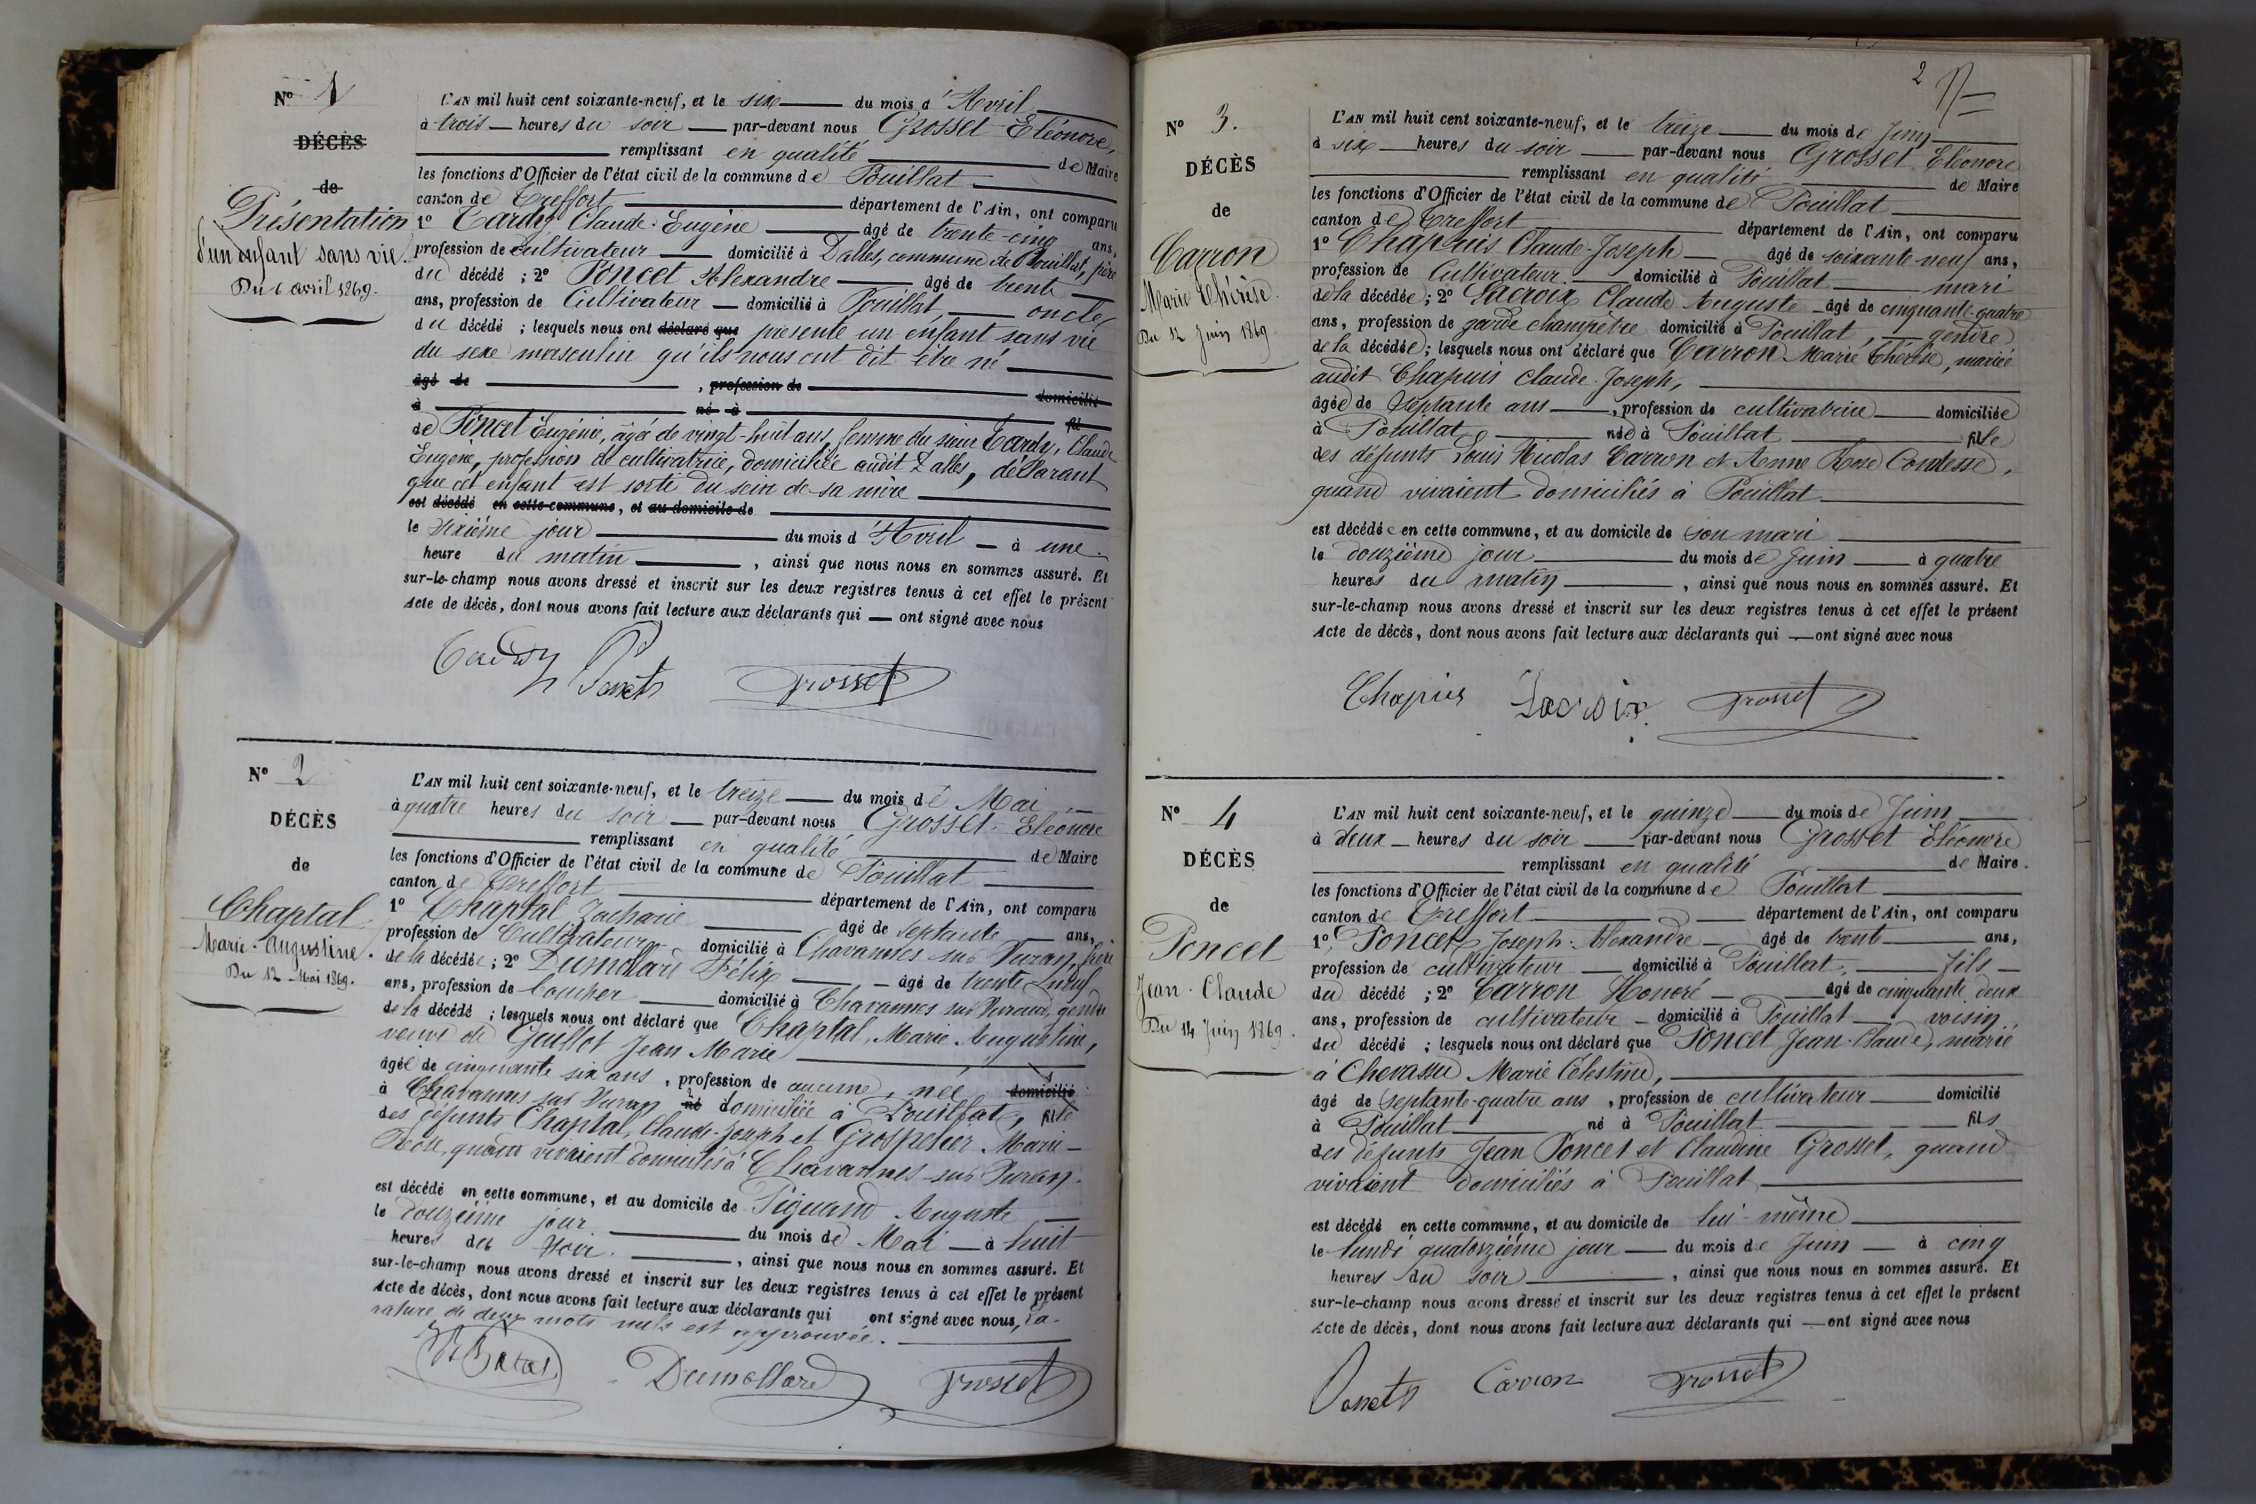 N° 1
DÉCÈS
de
Présentation
d'un enfant sans vie.
Du 6 avril 1869.
L'AN mil huit cent soixante-neuf, et le six du mois d'Avril
à trois heures du soir par-devant nous Grosset Eléonore,
remplissant en qualité de Maire
les fonctions d'Officier de l'état civil de la commune de Pouillat
canton de Treffort département de l'Ain, ont comparu
1° Tardy Claude-Eugène âgé de trente-cinq ans,
profession de cultivateur domicilié à Dalles, commune de Pouillat, père
du décédé ; 2° Poncet Alexandre âgé de trente
ans, profession de Cultivateur domicilié à Pouillat, oncle
du décédé ; lesquels nous ont déclaré que présenté un enfant sans vie
du sexe masculin qu'ils nous ont dit être né
âgé de , profession de domicilié
à né à fil
de Poncet Eugénie, âgée de vingt-huit ans, femme du sieur Tardy, Claude
Eugène, profession de cultivatrice, domiciliée audit Dalles, déclarant
que cet enfant est sorti du sein de sa mère
est décédé en cette commune, et au domicile de
le sixième jour du mois d'Avril à une
heure du matin , ainsi que nous nous en sommes assuré. Et
sur-le-champ nous avons dressé et inscrit sur les deux registres tenus à cet effet le présent
Acte de décès, dont nous avons fait lecture aux déclarants qui ont signé avec nous
Tardy Poncet Grosset
N° 2
DÉCÈS
de
Chaptal
Marie-Augustine.
Du 12 Mai 1869.
L'AN mil huit cent soixante-neuf, et le treize du mois de Mai
à quatre heures du soir par-devant nous Grosset Eléonore
remplissant en qualité de Maire
les fonctions d'Officier de l'état civil de la commune de Pouillat
canton de Treffort département de l'Ain, ont comparu
1° Chaptal Zacharie âgé de septante ans,
profession de Cultivateur domicilié à Chavannes sur Suran, frère
de la décédée ; 2° Dumolard Félix âgé de trente neuf
ans, profession de boucher domicilié à Chavannes sur Suran, gendre
de la décédé ; lesquels nous ont déclaré que Chaptal, Marie Augustine,
veuve de Guillot Jean Marie
âgée de cinquante six ans , profession de aucune, née domicilié
à Chavannes sur Suran né domiciliée à Pouillat, fille
des défunts Chaptal, Claude-Joseph et Grospelier Marie-
Rose, quand vivaient domiciliés à Chavannes-sur-Suran.
est décédé en cette commune, et au domicile de Piquand Auguste
le douzième jour du mois de Mai à huit
heures du soir. , ainsi que nous nous en sommes assuré. Et
sur-le-champ nous avons dressé et inscrit sur les deux registres tenus à cet effet le présent
Acte de décès, dont nous avons fait lecture aux déclarants qui ont signé avec nous, la
rature de deux mots nuls est approuvée.
Dumollard Grosset
2
N° 3.
DÉCÈS
de
Carron
Marie Thérèse.
Du 12 Juin 1869.
L'AN mil huit cent soixante-neuf, et le treize du mois de Juin
à six heures du soir par-devant nous Grosset Eléonore
remplissant en qualité de Maire
les fonctions d'Officier de l'état civil de la commune de Pouillat
canton de Treffort département de l'Ain, ont comparu
1° Chapuis Claude-Joseph âgé de soixante neuf ans,
profession de Cultivateur domicilié à Pouillat mari
de la décédée ; 2° Lacroix Claude Auguste âgé de cinquante-quatre
ans, profession de garde champêtre domicilié à Pouillat, gendre
de la décédée ; lesquels nous ont déclaré que Carron Marie Thérèse, mariée
audit Chapuis Claude Joseph,
âgée de septante ans , profession de cultivatrice domiciliée
à Pouillat née à Pouillat fille
des défunts Louis Nicolas Carron et Anne Rose Comtesse,
quand vivaient domiciliés à Pouillat
est décédée en cette commune, et au domicile de son mari
le douzième jour du mois de Juin à quatre
heures du matin , ainsi que nous nous en sommes assuré. Et
sur-le-champ nous avons dressé et inscrit sur les deux registres tenus à cet effet le présent
Acte de décès, dont nous avons fait lecture aux déclarants qui ont signé avec nous
Chapuis Lacroix Grosset
N° 4
DÉCÈS
de
Poncet
Jean-Claude
Du 14 Juin 1869.
L'AN mil huit cent soixante-neuf, et le quinze du mois de Juin
à deux heures du soir par-devant nous Grosset Eléonore
remplissant en qualité de Maire.
les fonctions d'Officier de l'état civil de la commune de Pouillat
canton de Treffort département de l'Ain, ont comparu
1° Poncet, Joseph-Alexandre âgé de trente ans,
profession de cultivateur domicilié à Pouillat, fils
du décédé ; 2° Carron Honoré âgé de cinquante deux
ans, profession de cultivateur domicilié à Pouillat voisin
du décédé ; lesquels nous ont déclaré que Poncet Jean-Claude, marié
à Chevassu Marie Célestine,
âgé de septante-quatre ans , profession de cultivateur domicilié
à Pouillat né à Pouillat fils
des défunts Jean Poncet et Claudine Grosset, quand
vivaient domiciliés à Pouillat
est décédé en cette commune, et au domicile de lui-même
le lundi quatorzième jour du mois de Juin à cinq
heures du soir , ainsi que nous nous en sommes assuré. Et
sur-le-champ nous avons dressé et inscrit sur les deux registres tenus à cet effet le présent
Acte de décès, dont nous avons fait lecture aux déclarants qui ont signé avec nous
Poncet Carron Grosset